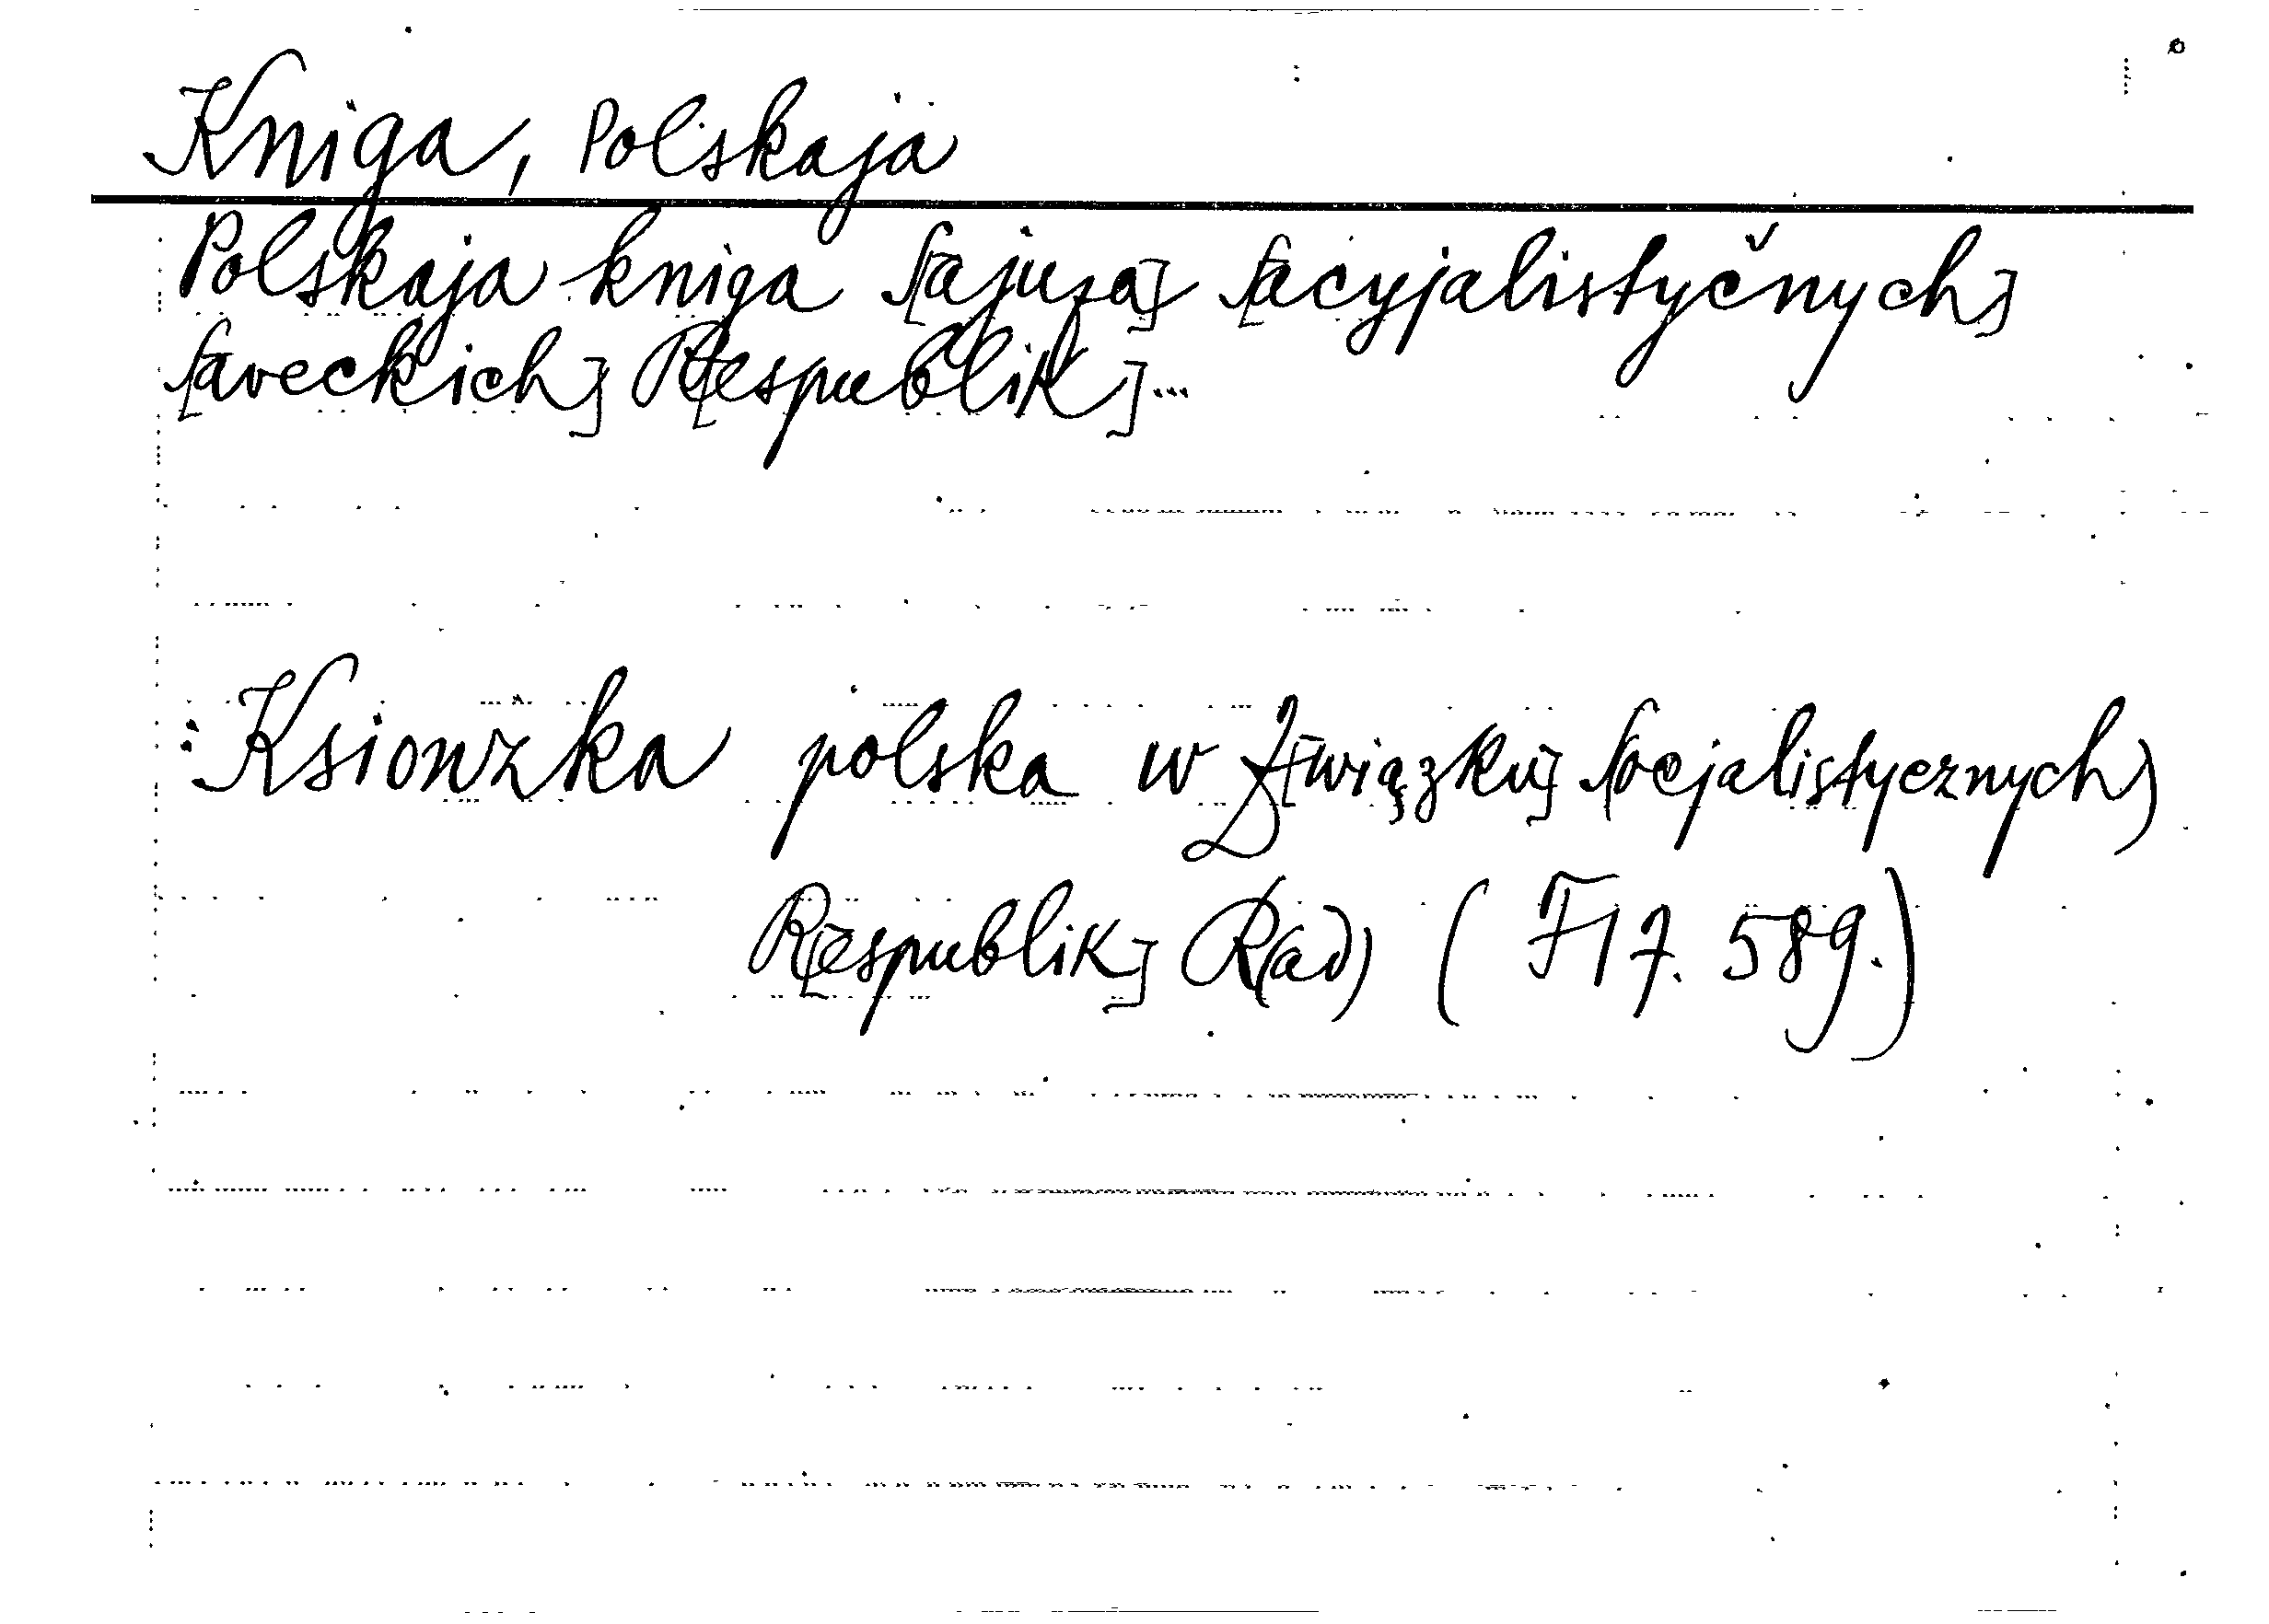 Kniga, Polskaja
Polskaja kniga S[ajuza] S[acyjalistyčnych]
S[aveckich] R[espublik]...
: Ksionżka polska w Z[wiązku] S(ocjalistycznych)
R[espublik] R(ad) (F 17. 589.)